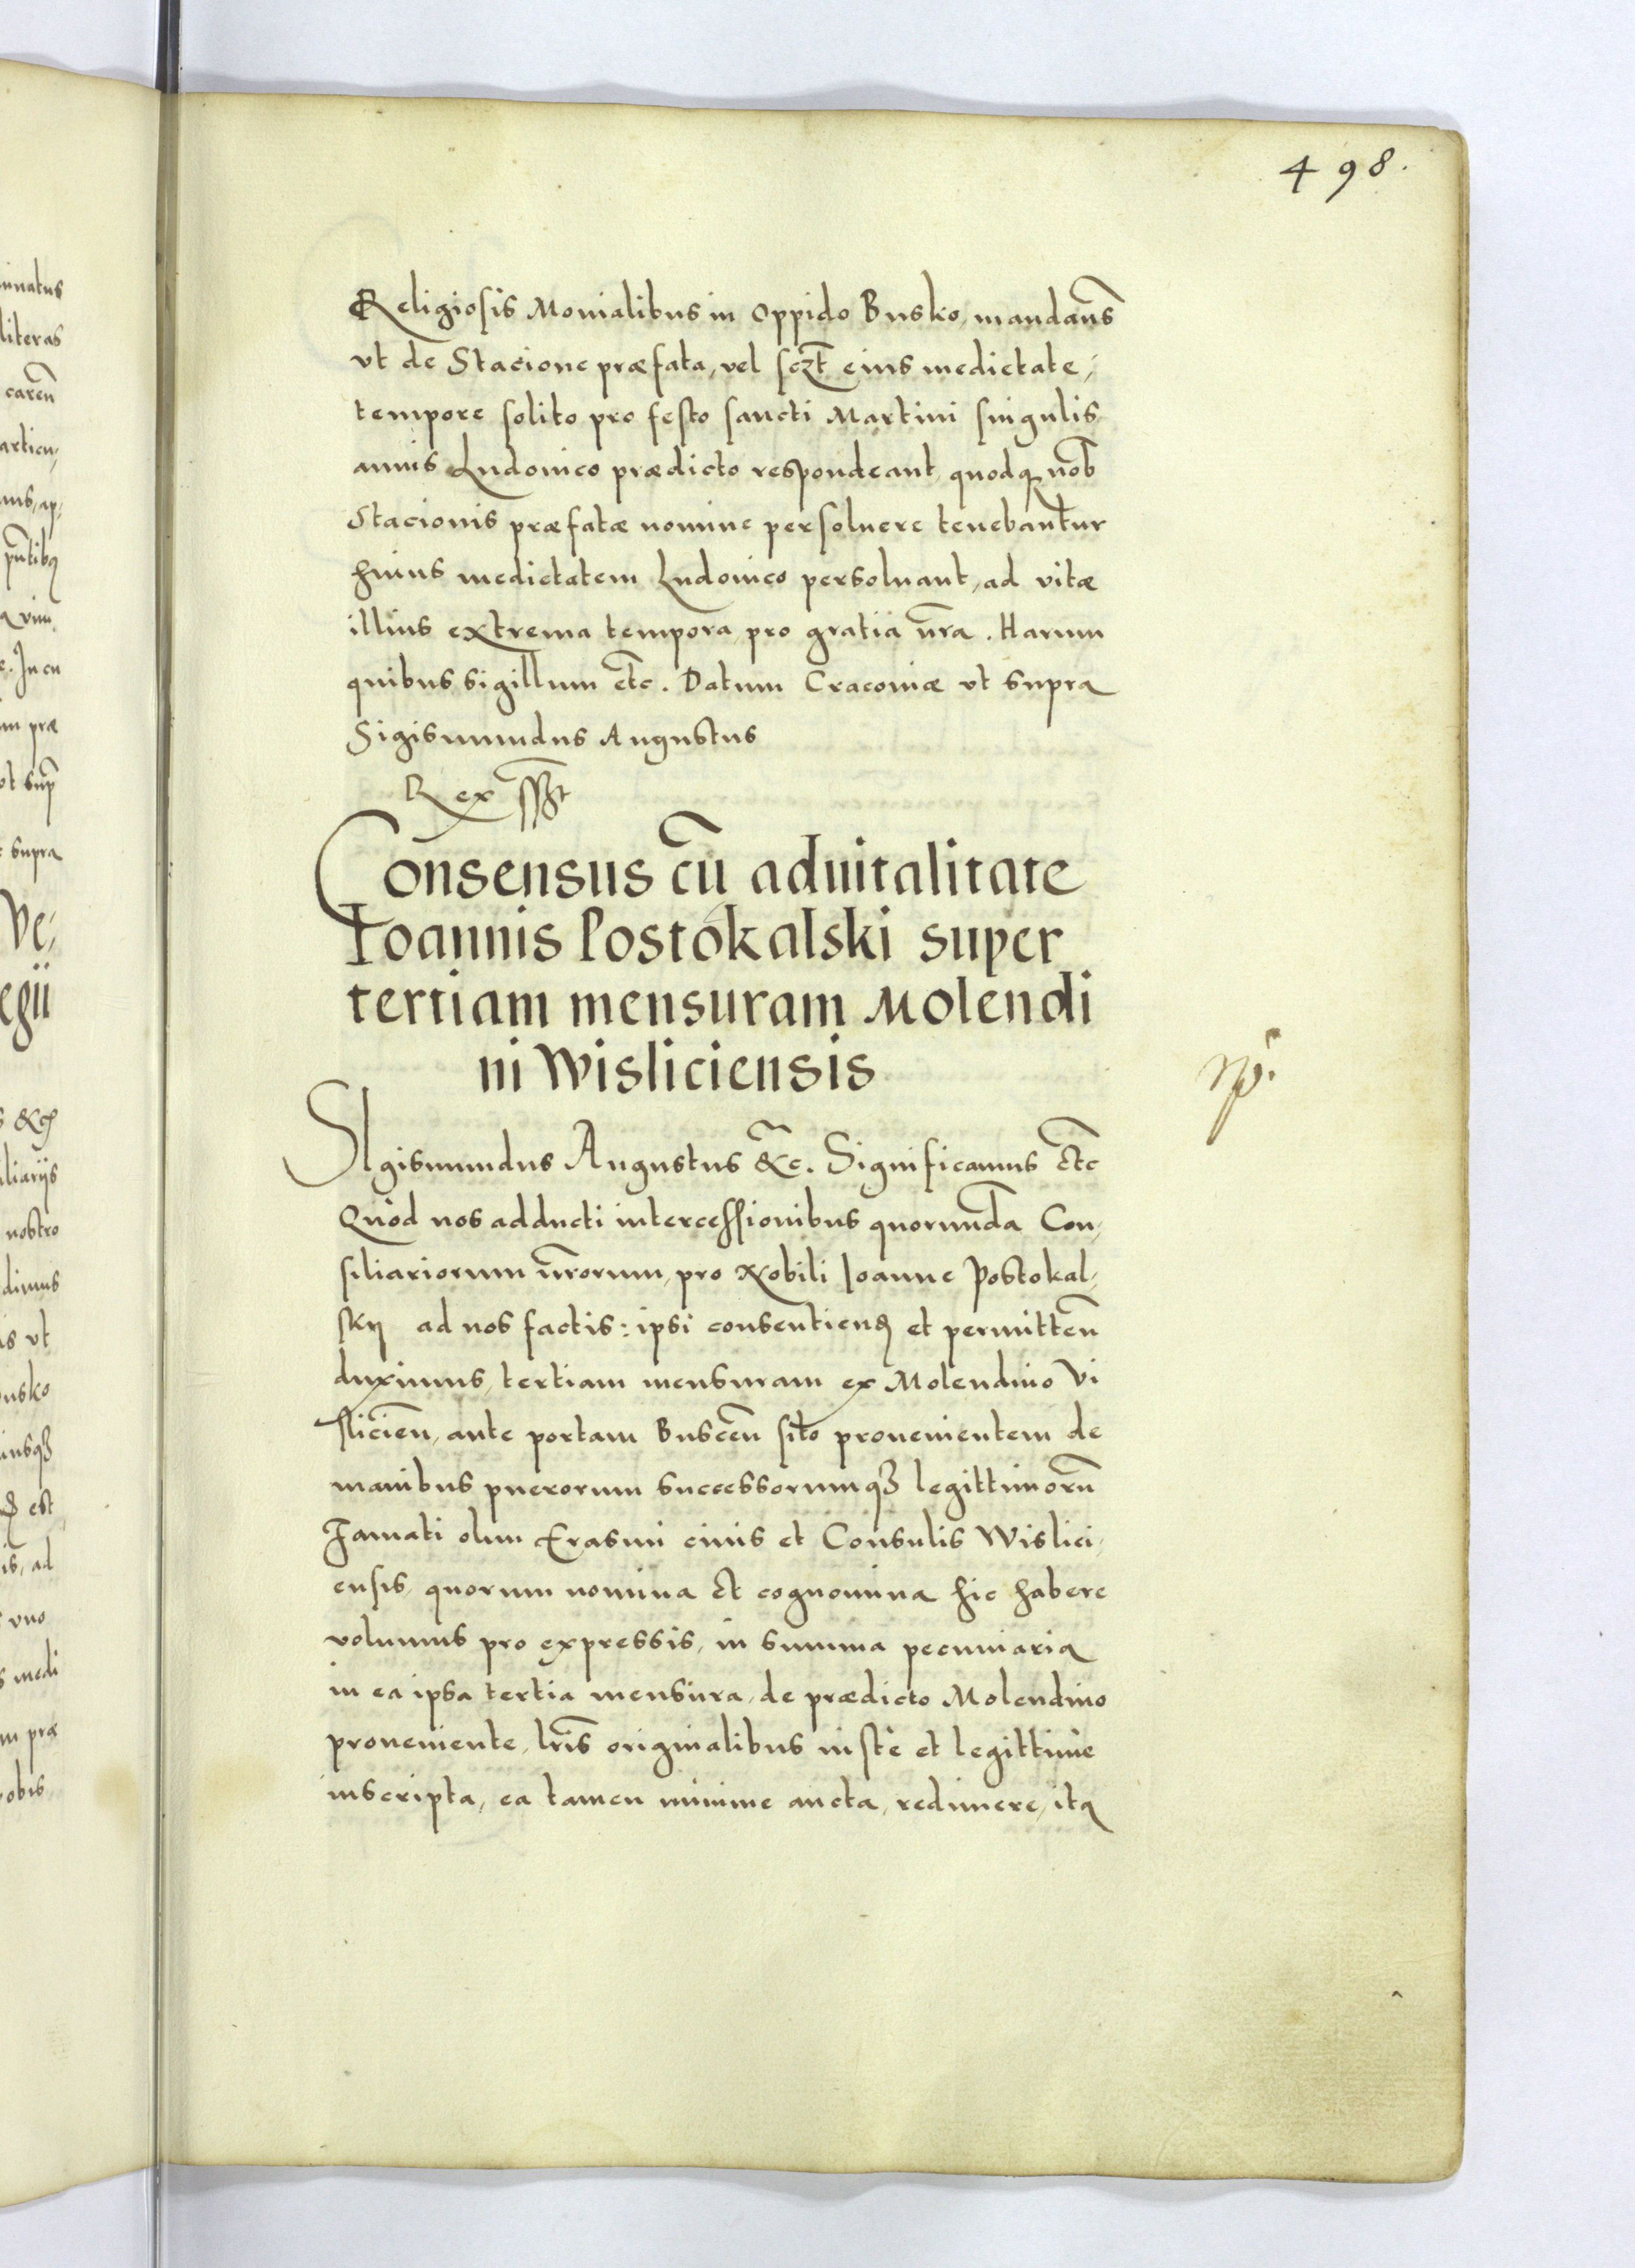 498.
Religiosis Monialibus in Oppido Busko, mandañs
vt de Stacione præfata, vel sczt̃ eius medietate,
tempore solito pro festo sancti Martini singulis
annis Ludouico prædicto respondeant, quodq nob̃
Stacionis præfatæ nomine persoluere tenebantur
huius medietatem Ludouico persoluant, ad vitæ
illius extrema tempora, pro gratia nr̃a. Harum
quibus sigillum etc̃. Datum Craconiæ vt supra
Sigismundus Augustus
Rex sszt
Consensus cũ aduitalitate
Ioannis Postokalski super
tertiam mensuram Molendi
ni Wisliciensis
SIgismundus Augustus &c̃. Significamus etc̃
Quod nos adducti intercessionibus quorundã Con,
siliariorum nr̃orum, pro Nobili Ioanne Postokal,
skij ad nos factis: ipsi consentiend et permitteñ
duximus, tertiam mensuram ex Molendino Vi
slicieñ, ante portam Busceñ sito prouenientem de
manibus puerorum successorumqꝫ legittimorũ
Famati olim Erasmi ciuis et Consulis Wislici,
ensis, quorum nomina et cognomina hic habere
volumus pro expressis, in summa pecuniaria
in ea ipsa tertia mensura, de prædicto Molendino
proueniente, lr̃is originalibus iustè et legittimè
inscripta, ea tamen minime aucta, redimere, itq